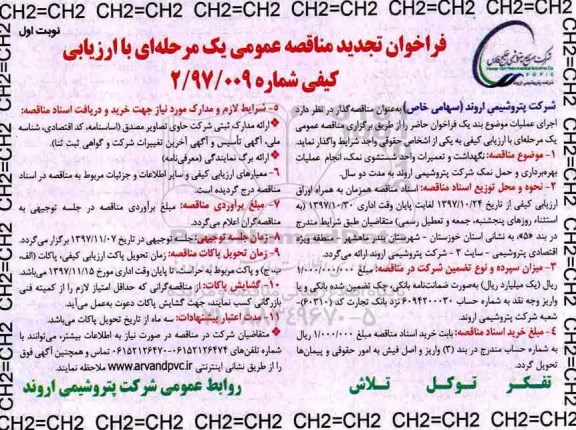 CH2=CH2 CH2=CH2 CH2=CH2 CH2=CH2 CH2=CH2 CH2=CH2 CH2=CH2
نوبت اول
شرکت صنایع پتروشیمی خلیج فارس
Persian Gulf Petrochemical Industries Co.
P G P I C
شرکت پتروشیمی اروند
فراخوان تجدید مناقصه عمومی یک مرحله‌ای با ارزیابی
کیفی شماره ۲/۹۷/۰۰۹
شرکت پتروشیمی اروند (سهامی خاص) به‌عنوان مناقصه‌گذار در نظر دارد
اجرای عملیات موضوع بند یک فراخوان حاضر را از طریق برگزاری مناقصه عمومی
یک مرحله‌ای با ارزیابی کیفی به یکی از اشخاص حقوقی واجد شرایط واگذار نماید.
۱- موضوع مناقصه: نگهداشت و تعمیرات واحد شستشوی نمک، انجام عملیات
بهره‌برداری و حمل نمک شرکت پتروشیمی اروند به مدت دو سال.
۲- نحوه و محل توزیع اسناد مناقصه: اسناد مناقصه همزمان به همراه اوراق
ارزیابی کیفی از تاریخ ۱۳۹۷/۱۰/۲۴ لغایت پایان وقت اداری ۱۳۹۷/۱۰/۳۰ (به
استثناء روزهای پنجشنبه، جمعه و تعطیل رسمی) متقاضیان طبق شرایط مندرج
در بند «۵» به نشانی استان خوزستان - شهرستان بندر ماهشهر - منطقه ویژه
اقتصادی پتروشیمی - سایت ۳ - شرکت پتروشیمی اروند ارائه می‌گردد.
۳- میزان سپرده و نوع تضمین شرکت در مناقصه: مبلغ ۱/۰۰۰/۰۰۰/۰۰۰
ریال (یک میلیارد ریال) به‌صورت ضمانت‌نامه بانکی، چک تضمین شده بانکی و یا
واریز وجه نقد به شماره حساب ۶۰۹۴۲۰۰۰۳۰ نزد بانک تجارت کد (۶۰۳۱۰)
شعبه شرکت پتروشیمی اروند.
۴- مبلغ خرید اسناد مناقصه: بابت خرید اسناد مناقصه مبلغ ۱/۰۰۰/۰۰۰ ریال
به شماره حساب مندرج در بند (۳) واریز و اصل فیش به امور حقوقی و پیمان‌ها
تحویل گردد.
۵- شرایط لازم و مدارک مورد نیاز جهت خرید و دریافت اسناد مناقصه:
ارائه مدارک ثبتی شرکت حاوی تصاویر مصدق (اساسنامه، کد اقتصادی، شناسه
ملی، آگهی تأسیس و آگهی آخرین تغییرات شرکت و گواهی ثبت ثنا).
ارائه برگ نمایندگی (معرفی‌نامه)
۶- معیارهای ارزیابی کیفی و سایر اطلاعات و جزئیات مربوط به مناقصه در اسناد
مناقصه درج گردیده است.
۷- مبلغ برآوردی مناقصه: مبلغ برآوردی مناقصه در جلسه توجیهی به
مناقصه‌گران اعلام می‌گردد.
۸- زمان جلسه توجیهی: جلسه توجیهی در تاریخ ۱۳۹۷/۱۱/۰۷ برگزار می‌گردد.
۹- زمان تحویل پاکات مناقصه: زمان تحویل پاکت ارزیابی کیفی، پاکات (الف،
ب، ج) و پاکت مربوط به لاحست، تا پایان وقت اداری مورخ ۱۳۹۷/۱۱/۱۵ می‌باشد.
۱۰- گشایش پاکات: از مناقصه‌گرانی که حداقل امتیاز لازم را از کمیته فنی
بازرگانی کسب نمایند، جهت گشایش پاکات دعوت به‌عمل می‌آید.
۱۱- مدت اعتبار پیشنهادات: سه ماه از تاریخ تحویل پاکات می‌باشد.
متقاضیان شرکت در مناقصه در صورت نیاز به اطلاعات بیشتر، می‌توانند با
شماره تلفن‌های ۰۶۱۵۲۱۲۶۴۷۴-۰۶۱۵۲۱۲۶۴۷۰ تماس و همچنین آگهی فوق
را از طریق نشانی اینترنتی www.arvandpvc.ir ملاحظه نمایند.
تفکر توکل تلاش
روابط عمومی شرکت پتروشیمی اروند
CH2=CH2 CH2=CH2 CH2=CH2 CH2=CH2 CH2=CH2 CH2=CH2 CH2=CH2